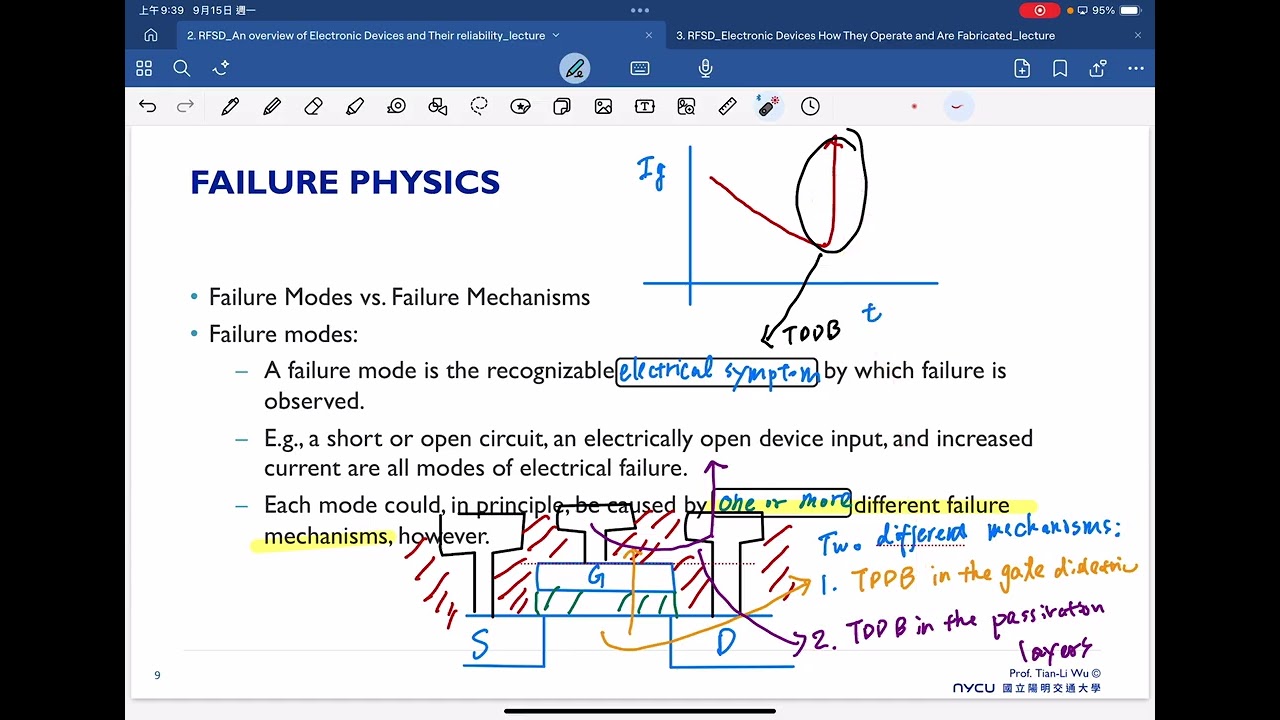 上午9:39 9月15日 週一
95%
2. RFSD_An overview of Electronic Devices and Their reliability_lecture
3. RFSD_Electronic Devices How They Operate and Are Fabricated_lecture
FAILURE PHYSICS
Ig
t
TDDB
• Failure Modes vs. Failure Mechanisms
• Failure modes:
– A failure mode is the recognizable electrical symptom by which failure is
observed.
– E.g., a short or open circuit, an electrically open device input, and increased
current are all modes of electrical failure.
– Each mode could, in principle, be caused by one or more different failure
mechanisms, however.
Two different mechanisms:
G
1. TDDB in the gate dielectric
S
D
2. TDDB in the passivation
layers
9
Prof. Tian-Li Wu ©
NYCU 國立陽明交通大學